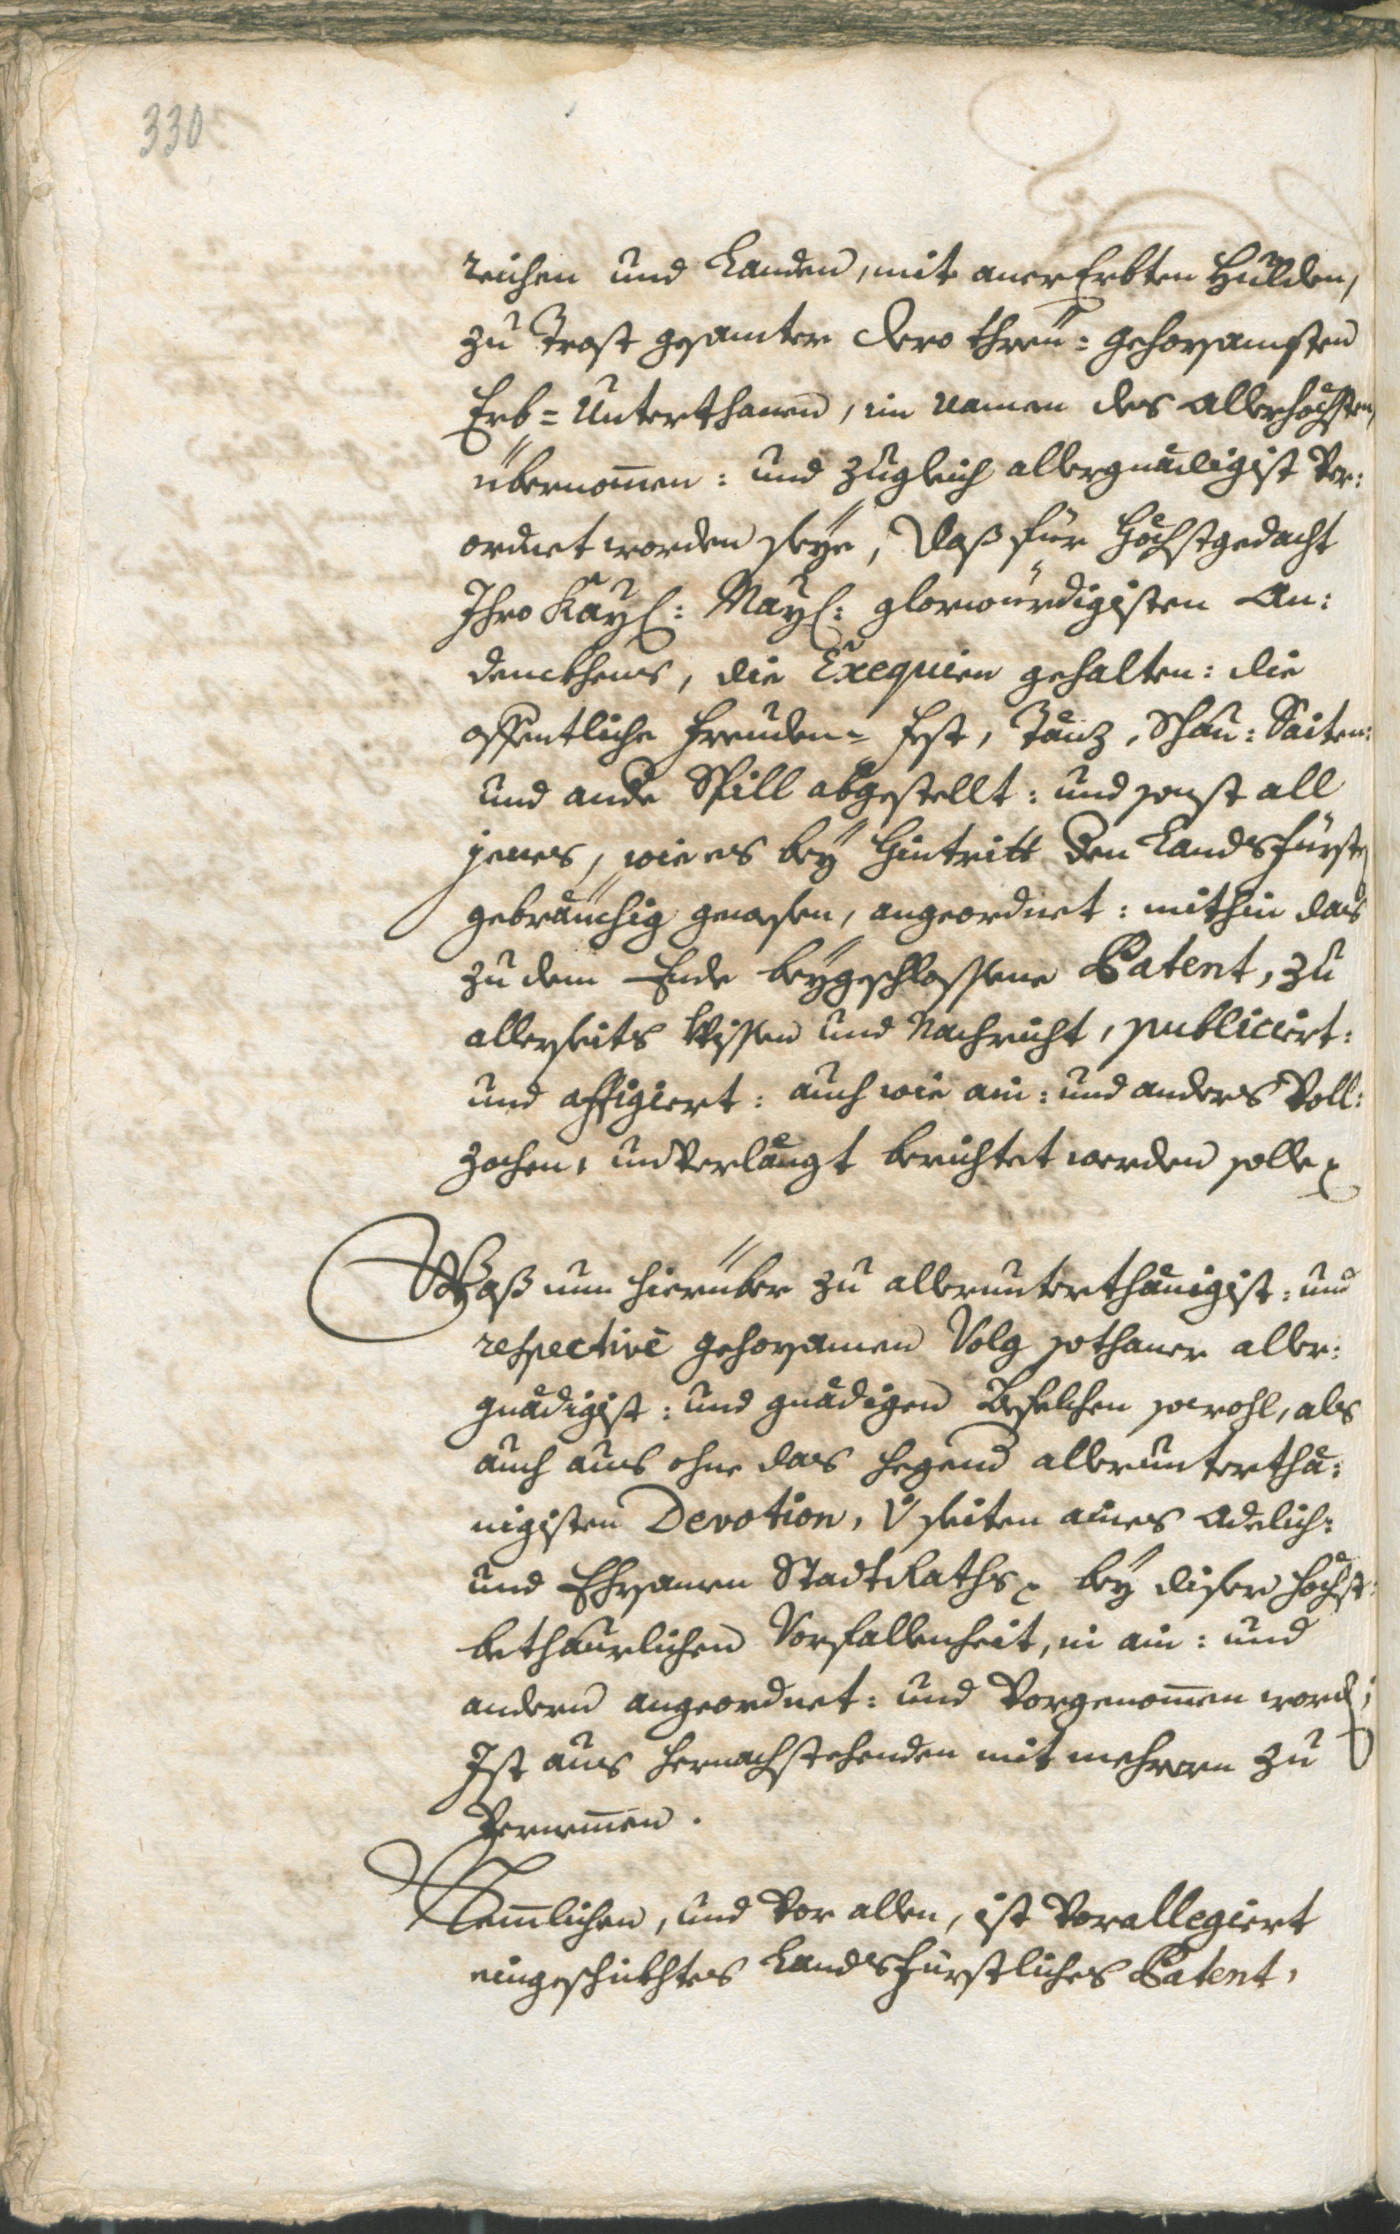 330
reichen und Landen, mit anererbten Hulden,
zu Trost gesamter dero threu= gehorsamsten
Erb= Unterthanen, im Namen des Allerhöchsten,
übernom̅en: und zugleich allergnädigist Ver:
ordnet worden seÿe, Daß für Höchstgedacht
Ihro Kaÿ: Maÿ: glorwürdigisten An:
denckhens, die Exequien gehalten: die
offentliche Freuden= Fest, Tänz, Schau: Saiten:
und ande Spill abgestellt: und sonst all
jenes, wie es beÿ Hintritt den Landsfürsten
gebräuchig gewesen, angeordnet: mithin das
zu dem Ende beÿgeschlossene Patent, zu
allerseits Wissen und Nachricht, publiciert:
und affigiert: auch wie ain: und anders Voll:
zochen, unverlängt berichtet werden solle
Waß nun hierüber zu allerunterthänigist: und
respective gehorsamen Volg sothaner aller:
gnädigist: und gnädigen Befelchen sowohl, als
auch aus ohne das hegend allerunterthä:
nigisten Devotion, seiten aines Adelich:
und Ehrsamen StadtRaths beÿ diser höchst:
bethaurlichen Vorfallenheit, in ain: und
andern angeordnet: und Vorgenom̅en word;
Ist aus hernachstehenden mit mehrern zu
Vernem̅en.
Nem̅lichen, und Vor allen, ist Vorallegiert
eingeschickhtes Landsfürstliches Patent,